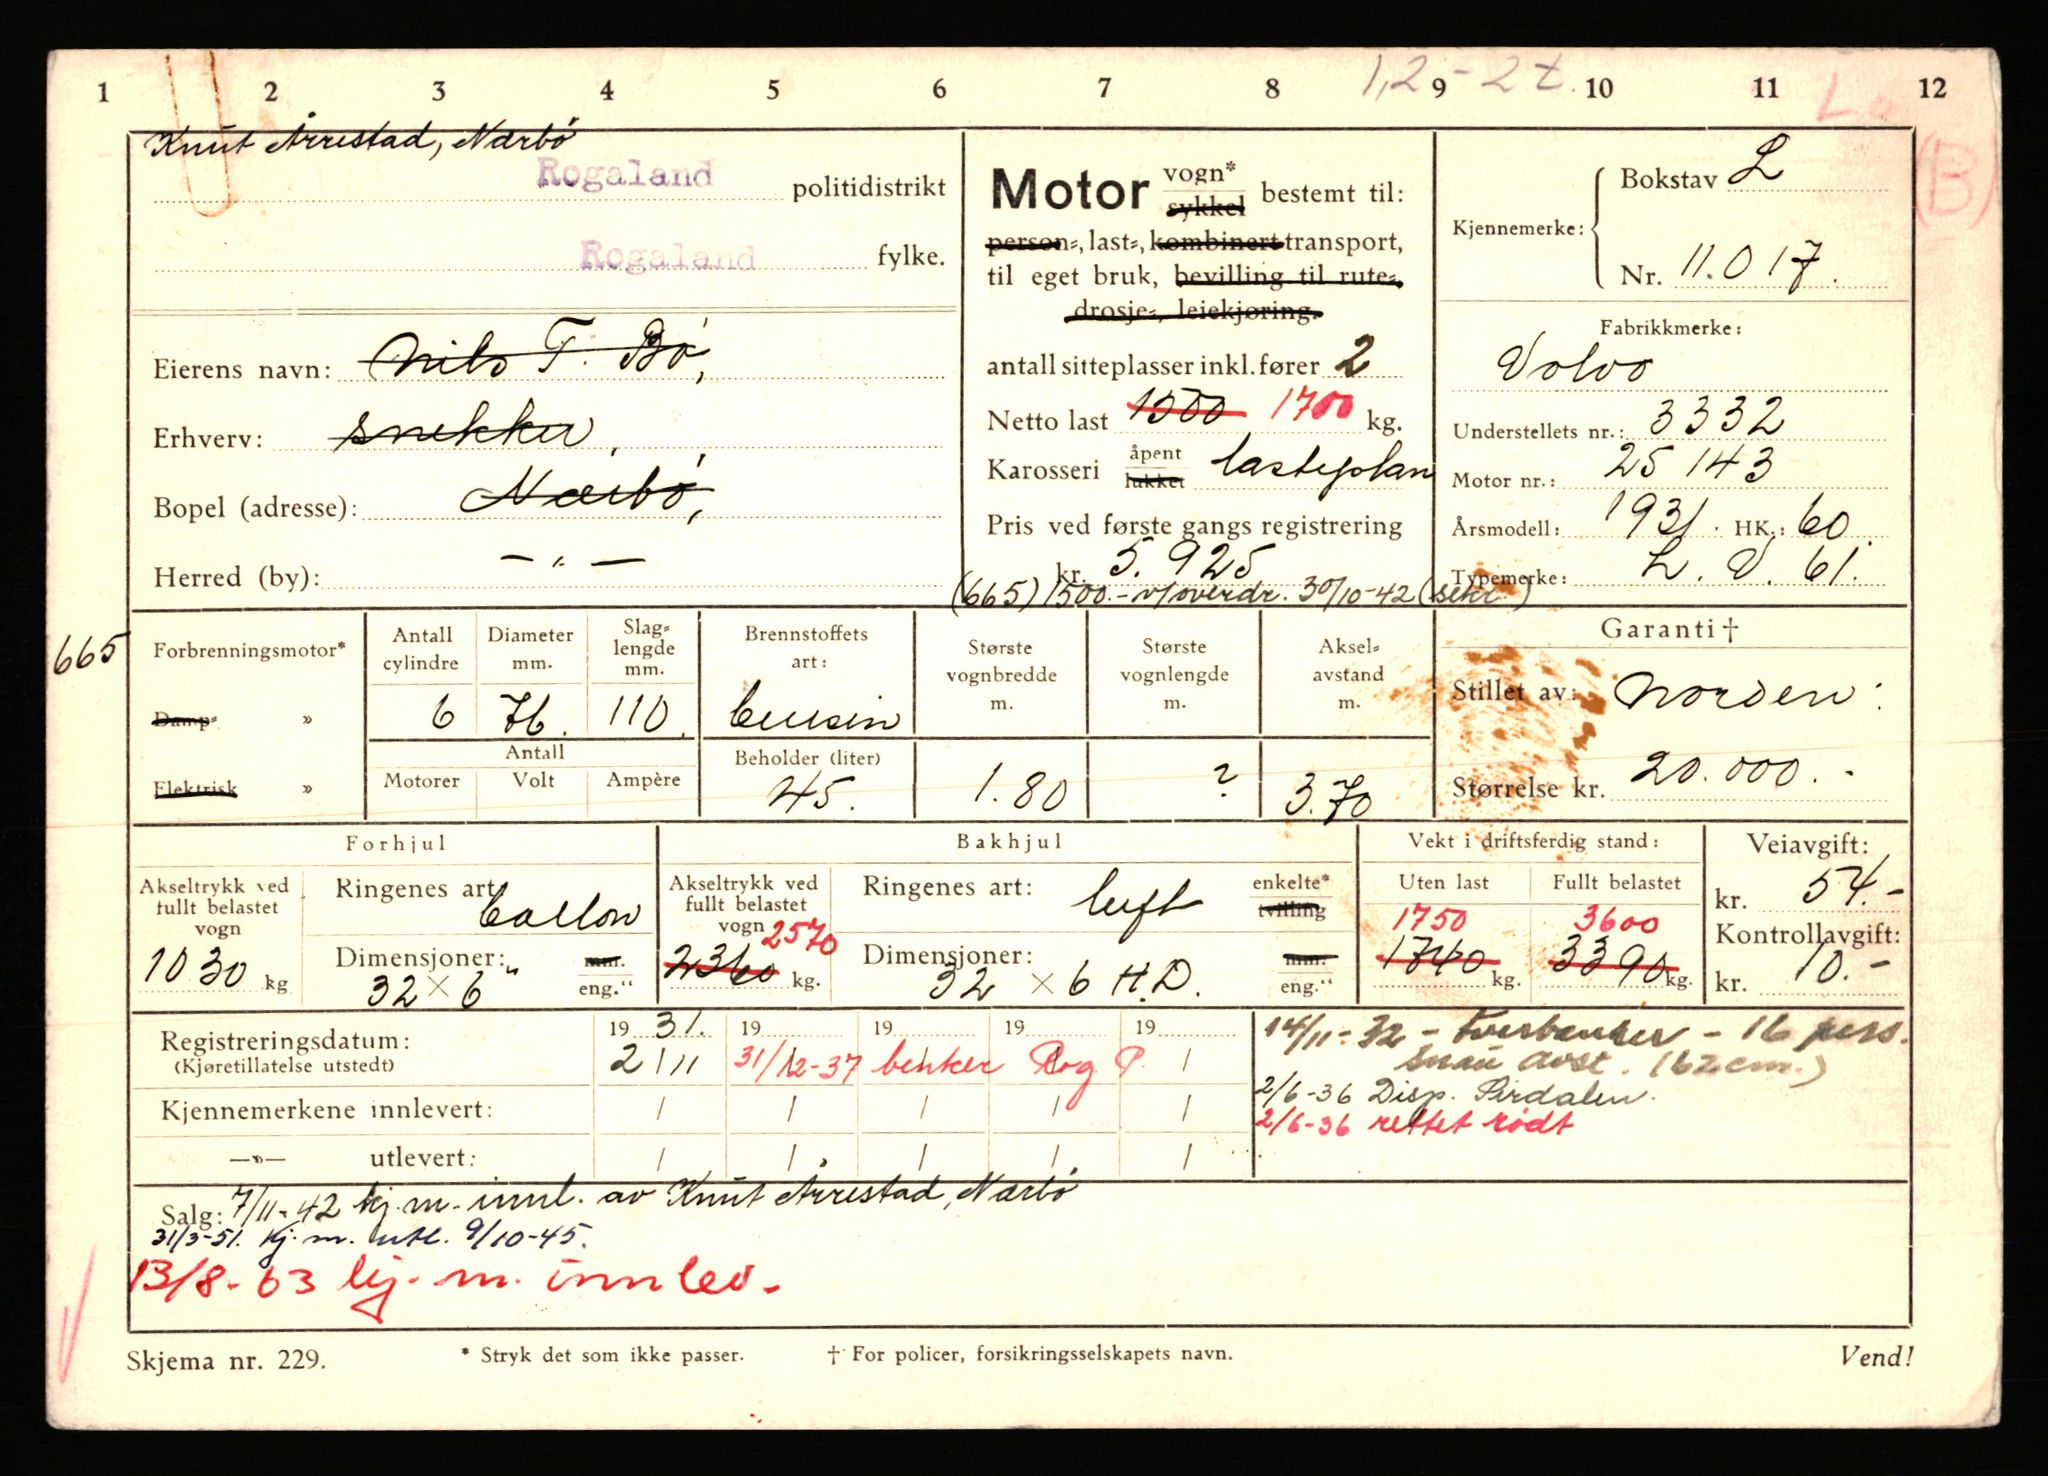 1 2 3 4 5 6 7 8 9 10 11 12
1,2 - 2 t.
L
(B)
Knut Årrestad, Nærbö
Rogaland politidistrikt
Rogaland fylke.
Eierens navn: Nils T. Bö,
Erhverv: snekker,
Bopel (adresse): Nærbö,
Herred (by): — „ —
Motor vogn* sykkel bestemt til:
person-, last-, kombinert transport,
til eget bruk, bevilling til rute-,
drosje-, leiekjøring.
antall sitteplasser inkl. fører 2
Netto last 1500 1700 kg.
Karosseri åpent lukket lasteplan
Pris ved første gangs registrering
kr. 5.925
(665) 1500.- v/overdr. 30/10-42 (sekr.)
Kjennemerke: Bokstav L
Nr. 11.017.
Fabrikkmerke:
Volvo
Understellets nr.: 3332
Motor nr.: 25143
Årsmodell: 1931. HK.: 60.
Typemerke: L.V. 61.
665
Forbrenningsmotor*
Damp- »
Elektrisk »
Antall cylindre 6
Diameter mm. 76.
Slaglengde mm. 110.
Antall
Motorer Volt Ampère
Brennstoffets art: bensin
Beholder (liter) 45.
Største vognbredde m. 1.80
Største vognlengde m. ?
Akselavstand m. 3.70
Garanti †
Stillet av: Norden.
Størrelse kr. 20.000.-
Forhjul
Akseltrykk ved fullt belastet vogn 1030 kg
Ringenes art: ballon
Dimensjoner: 32 × 6" mm. eng."
Bakhjul
Akseltrykk ved fullt belastet vogn 2570 2360 kg.
Ringenes art: luft enkelte* tvilling
Dimensjoner: 32 × 6 H.D. mm. eng."
Vekt i driftsferdig stand:
Uten last Fullt belastet
1750 3600
1740 kg. 3390 kg.
Veiavgift:
kr. 54.-
Kontrollavgift:
kr. 10.-
Registreringsdatum: 19 31. 19 19 19 19
(Kjøretillatelse utstedt) 2/11 31/12-37 benker Rog. P. /
Kjennemerkene innlevert: / / / / /
—»— utlevert: / / / / /
14/11-32 - Tverbenker - 16 pers.
snau avst. (62 cm.)
2/6-36 Disp. Sirdalen.
2/6-36 rettet rödt
Salg: 7/11-42 kj.m. innl. av Knut Årrestad, Nærbö
31/3-51. Kj.m. utl. 9/10-45.
13/8-63 kj.m. innlev.
Skjema nr. 229.
* Stryk det som ikke passer.
† For policer, forsikringsselskapets navn.
Vend!